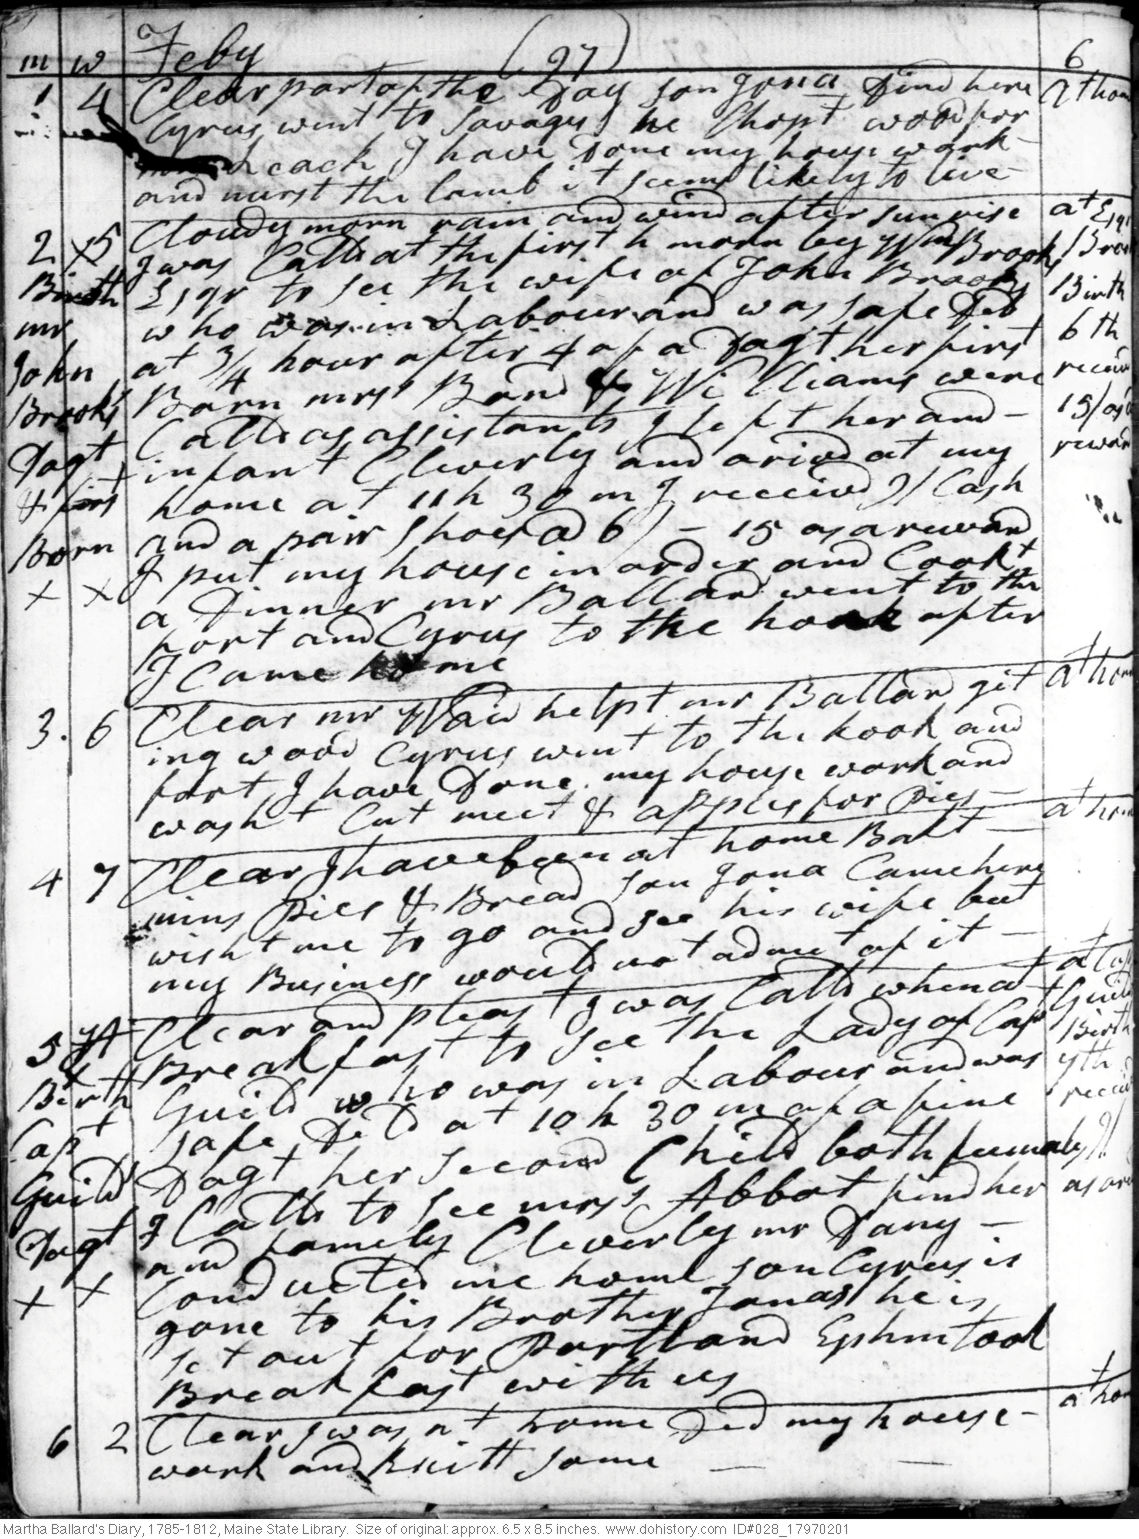 m w Feby (97) 6
1 4 Clear part of the Day son Jona Dind here at hom
Cyrus went to Savages he Chopt wood for
Leach I have Done my house work
and nurst the lamb it seems likely to live
2 x5 Cloudy morn rain and wind after sun rise at Esqr
I was Calld at the first h morn by Wm Brooks Broo
Birth Esqr to see the wife of John Brooks Birth
mr who was in Labour and was safe Dd 6th
John at 3/4 hour after 4 of a Dagt her first receiv
Brooks Born mrss Bond & Williams were 15/ as a
Dagt Calld as assistants I left her and rewar
& first infant Cleverly and arivd at my
Born home at 11 h 30 m I received 9/ Cash
x x and a pair shoes @ 6/ – 15 as a reward
I put my house in order and Cookt
a Dinner mr Ballard went to the
fort and Cyrus to the hook after
I Came home
3. 6 Clear mr Waid helpt mr Ballard git at hom
ing wood Cyrus went to the hook and
fort I have Done my house work and
washt Cut meet & apples for Pies –
4 7 Clear I have been at home Bakt – at hom
mins Pies & Bread son Jona Came here
wisht me to go and see his wife but
my Business would not admit of it –
5 Clear and pleast I was Calld when at at Cap
Birth Breakfast to see the Lady of Capt Guild
Capt Guild who was in Labour and was Birth
Guild safe Dd at 10 h 30 m of a fine 7th
Dagt Dagt her second Child both females receiv 9/
x x I Calld to see mrss Abbot find her as a re
and family Cleverly mr Dany –
Conducted me home son Cyrus is
gone to his Brother Jonas he is
set out for Portland Ephm took
Breakfast with us
6 2 Clear I was at home Did my house – at hom
work and knitt some –
Martha Ballard's Diary, 1785-1812, Maine State Library. Size of original: approx. 6.5 x 8.5 inches. www.dohistory.com ID#028_17970201